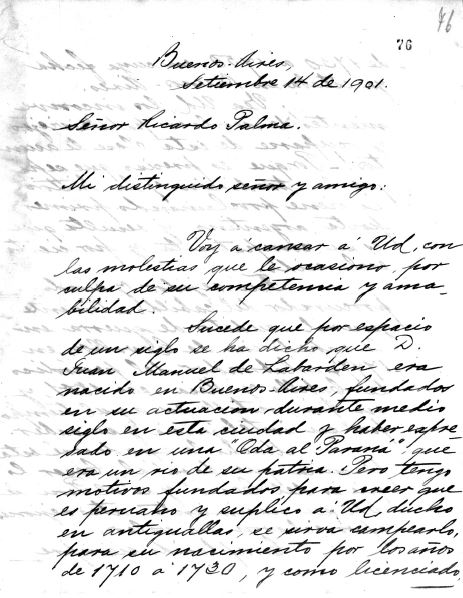 76
76
Buenos-Aires,
Setiembre 14 de 1901.
Señor Ricardo Palma.
Mi distinguido señor y amigo:
Voy á cansar á Ud, con
las molestias que le ocasiono, por
culpa de su competencia y ama-
bilidad.
Sucede que por espacio
de un siglo se ha dicho que D.
Juan Manuel de Labarden era
nacido en Buenos-Aires, fundados
en su actuacion durante medio
siglo en esta ciudad y haber expre-
sado en una "Oda al Paraná" que
era un rio de su patria. Pero tengo
motivos fundados para creer que
es peruano y suplico á Ud, ducho
en antiguallas, se sirva campearlo,
para su nacimiento por los años
de 1710 á 1730, y como licenciado,